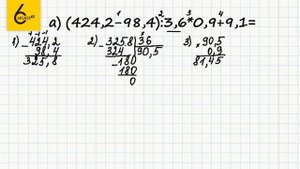 6
а) (424,2-98,4):3,6*0,9+9,1=
1 2 3 4
1) - 424,2 2) - 3258 | 36 3) × 90,5
98,4 324 | 90,5 0,9
325,8 - 180 81,45
180
0